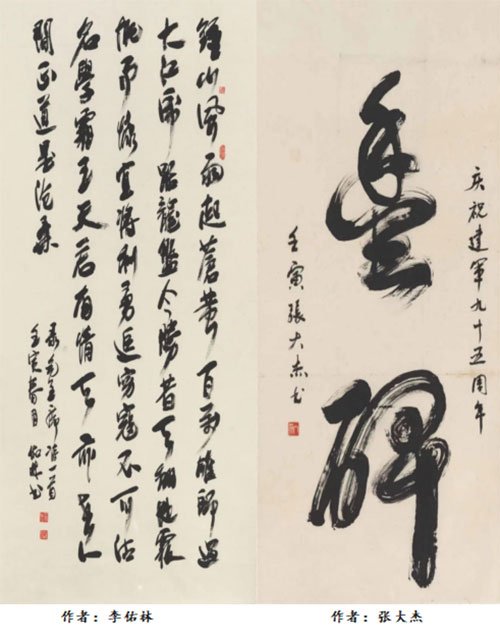 鍾山風雨起蒼黄百万雄師過
大江虎踞龍盤今勝昔天翻地覆
慨而慷宜將剩勇追窮寇不可沽
名學霸王天若有情天亦老人
間正道是滄桑
录毛主席诗一首
壬寅春月佑林书
庆祝建軍九十五周年
豐碑
壬寅張大杰书
作者：李佑林
作者：张大杰